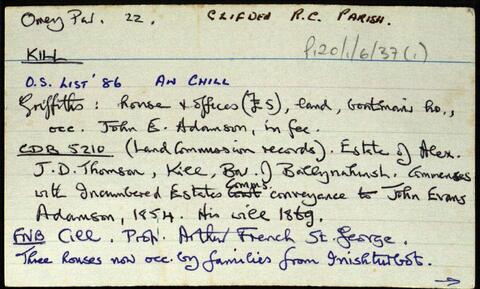 Omey Par. 22. CLIFDEN R.C. PARISH.
P120/1/6/37(1)
KILL
O.S. LIST '86 AN CHILL
Griffiths: house & offices (£5), land, boatman's ho.,
occ. John E. Adamson, in fee.
CDB 5210 (Land Commission records). Estate of Alex.
J.D. Thomson, Kill, Bar. of Ballynahinch. Commences
with Incumbered Estates Comms. conveyance to John Evans
Adamson, 1854. His will 1869.
FNB Cill. Propr. Arthur French St. George.
Three houses now occ. by families from Inishturbot.